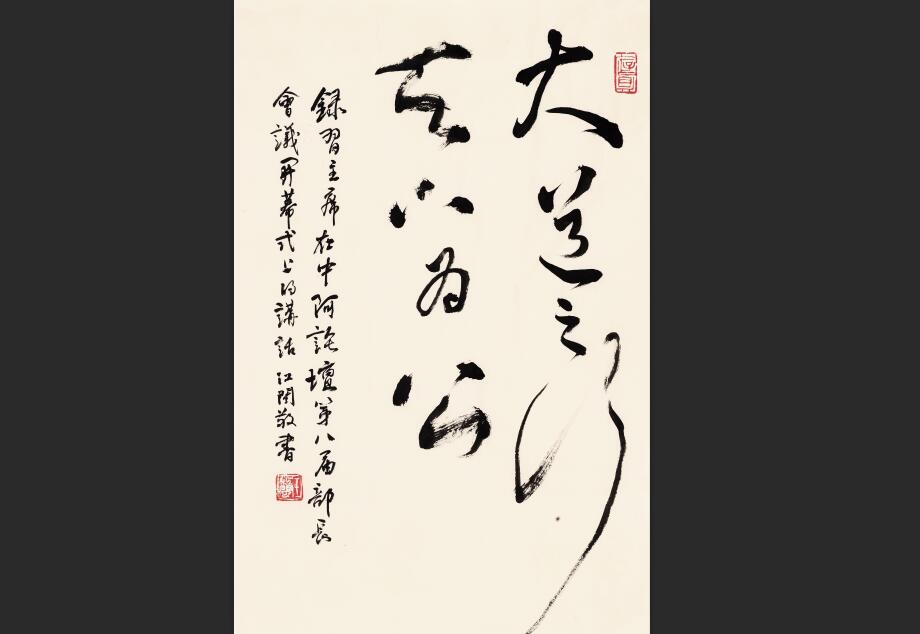 大道之行
天下为公
録習主席在中阿論壇第八届部長
會議開幕式上的講話 江闊敬書